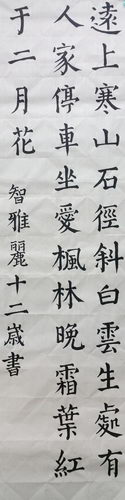 遠上寒山石徑斜白雲生處有
人家停車坐愛楓林晚霜葉紅
于二月花
智雅麗十二歲書